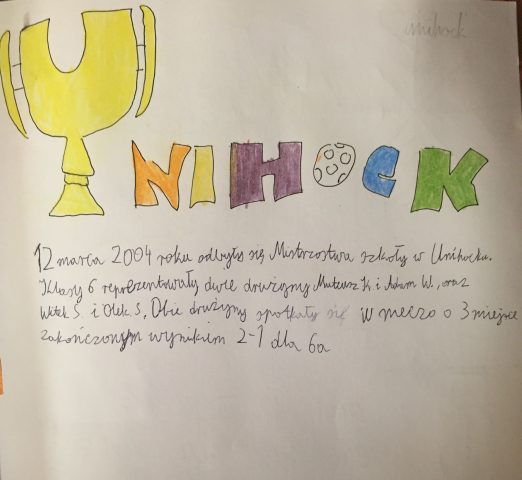 unihock
UNIHOCK
12 marca 2004 roku odbyły się Mistrzostwa szkoły w Unihocku.
Klasy 6 reprezentowały dwie drużyny Mateusz K i Adam W., oraz
Witek S. i Olek. S. Obie drużyny spotkały się w meczo o 3 miejsce
zakończonym wynikiem 2-1 dla 6a